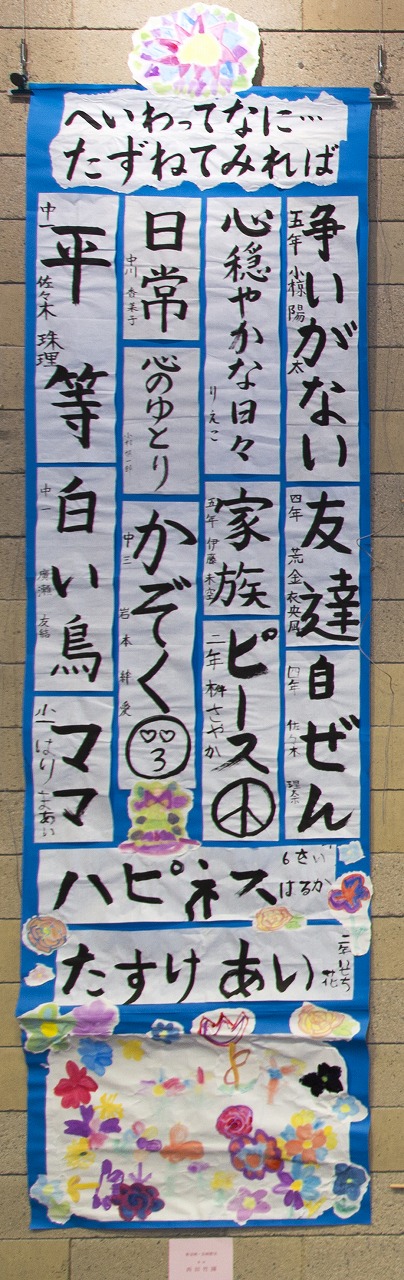 へいわってなに…
たずねてみれば
争いがない
五年 小椋陽太
友達
四年 荒金衣央凪
自ぜん
四年 佐々木
心穏やかな日々
りえこ
家族
五年 伊藤未空
ピース
二年 林さやか
日常
中川 香菜子
心のゆとり
かぞく
中三 岩本絆愛
平等
中一 佐々木珠理
白い鳥
中一 廣瀬友結
ママ
小一 はりまあい
ハピネス
6さい
はるか
たすけあい